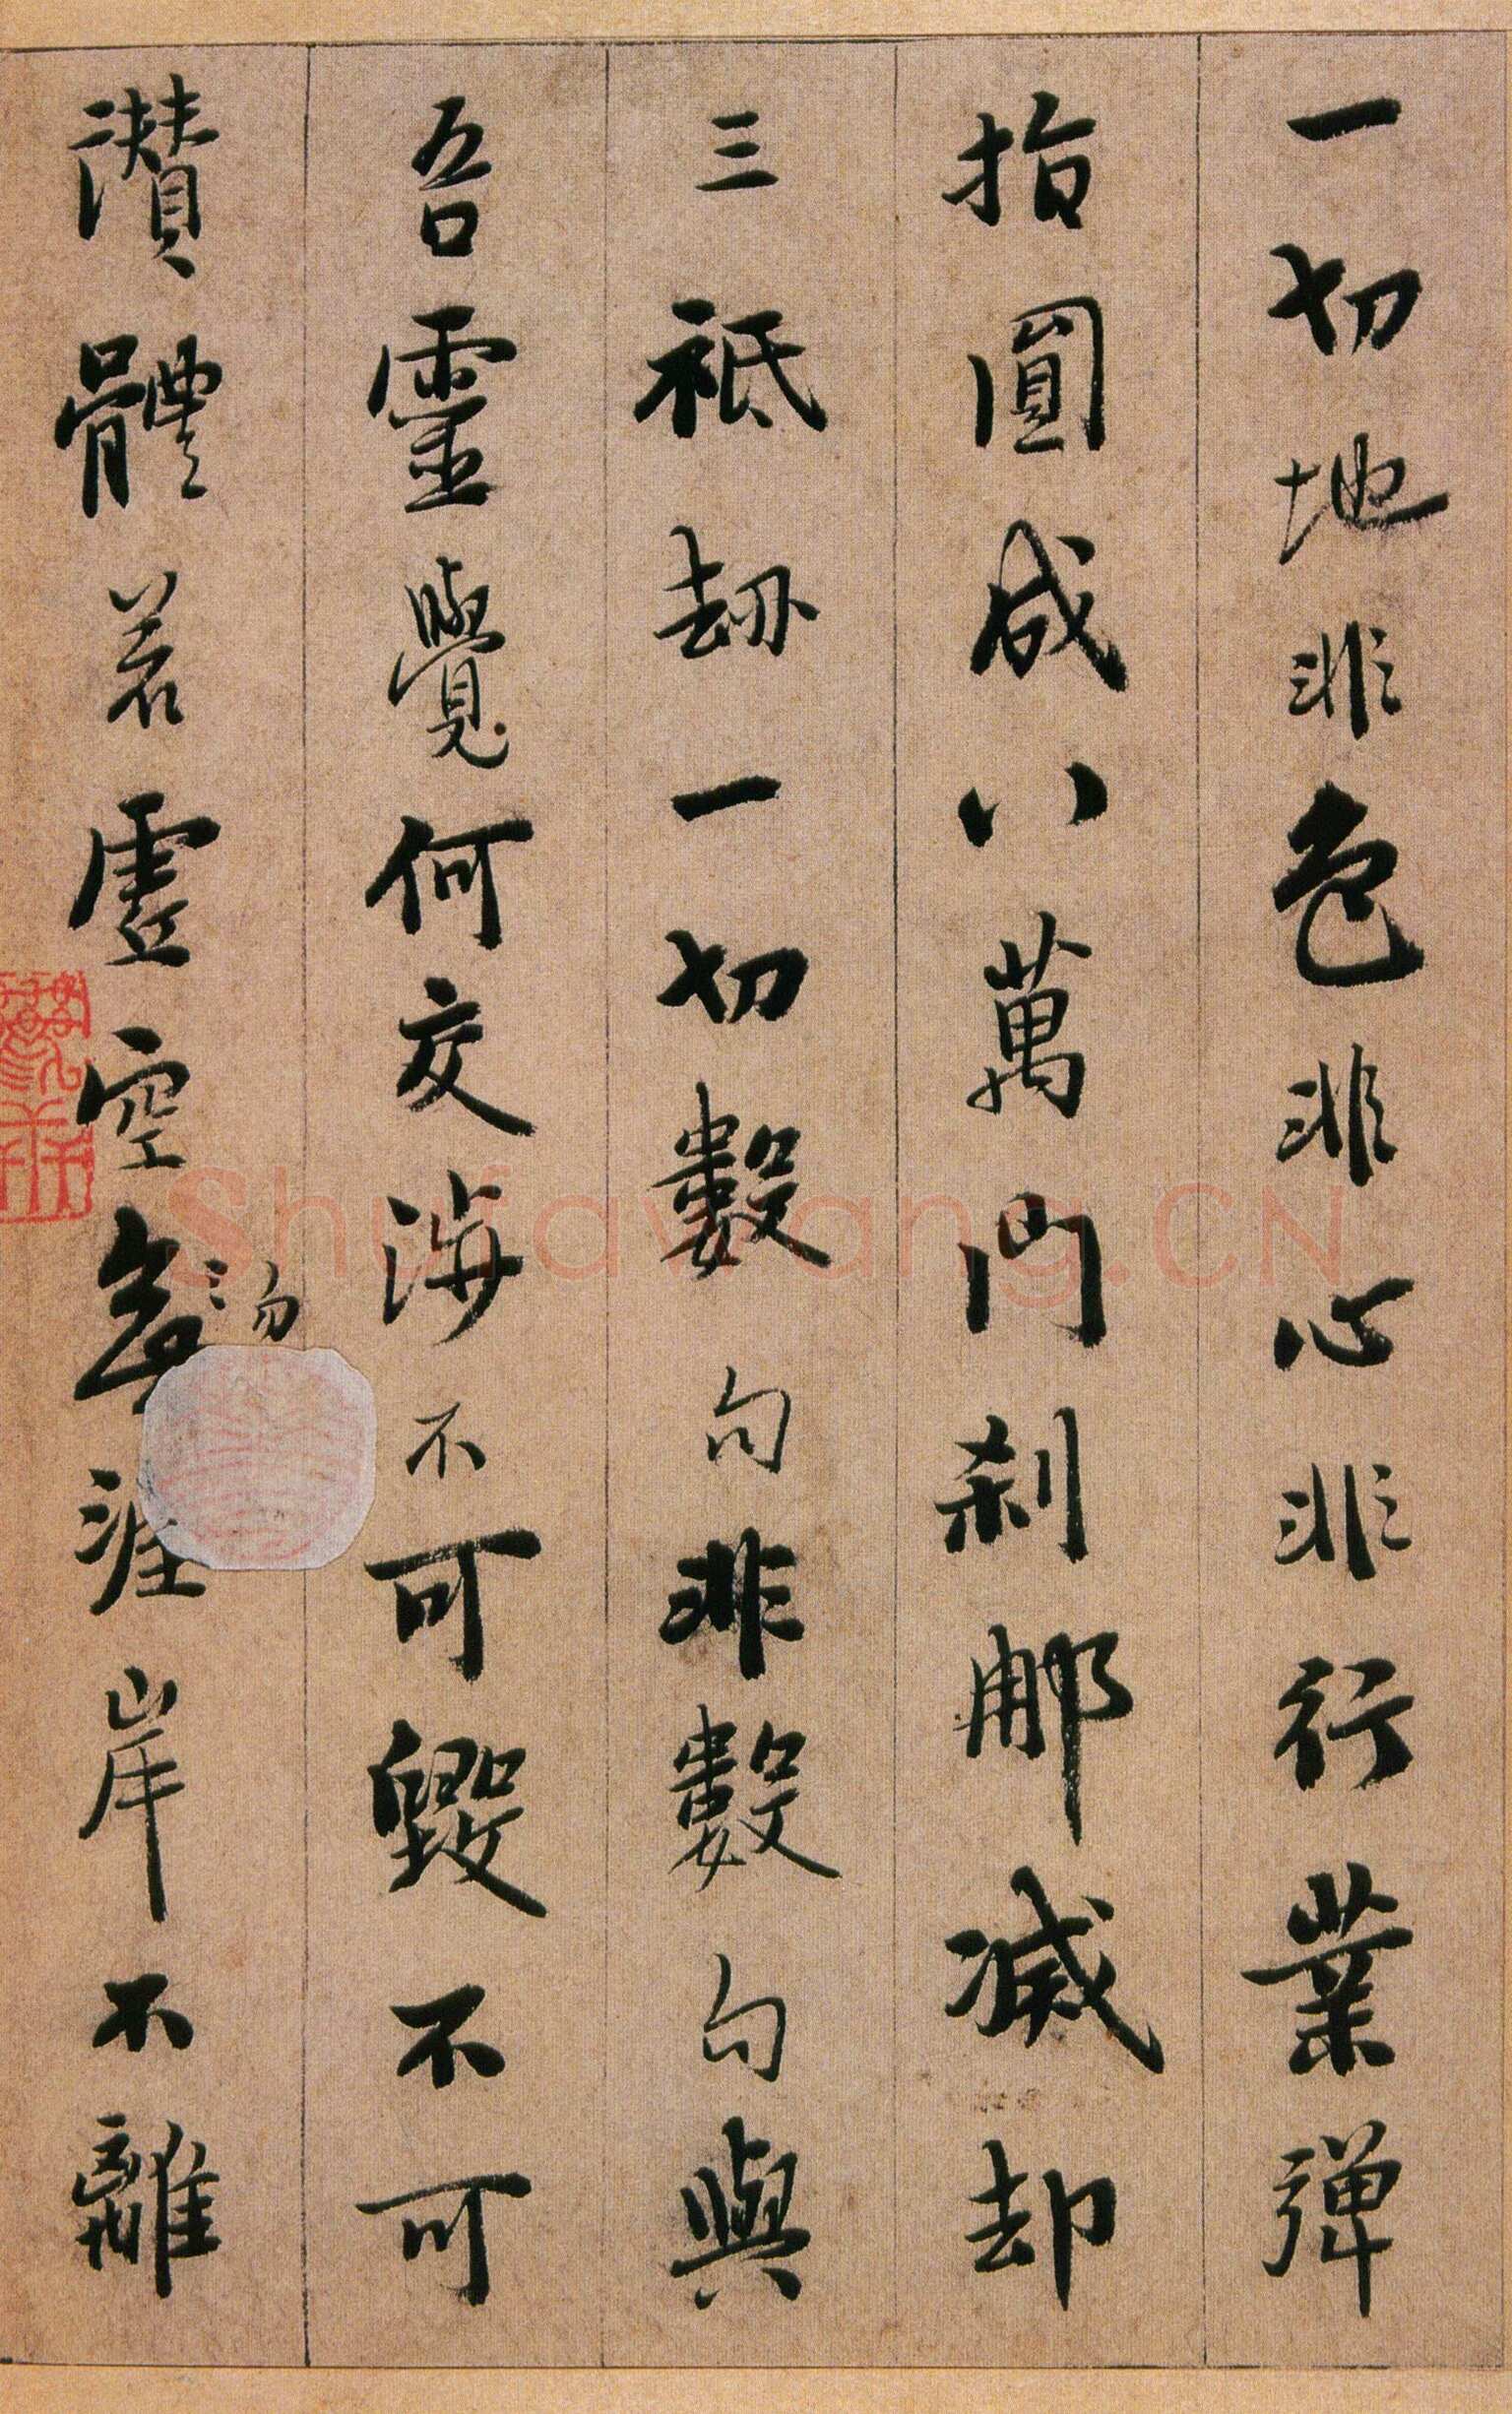 一切地非色非心非行業彈
指圓成八萬門刹那滅却
三祇劫一切數句非數句與
吾靈覺何交海不可毀不可
讚體若虛空無涯岸不離
勿
Shufawang.CN